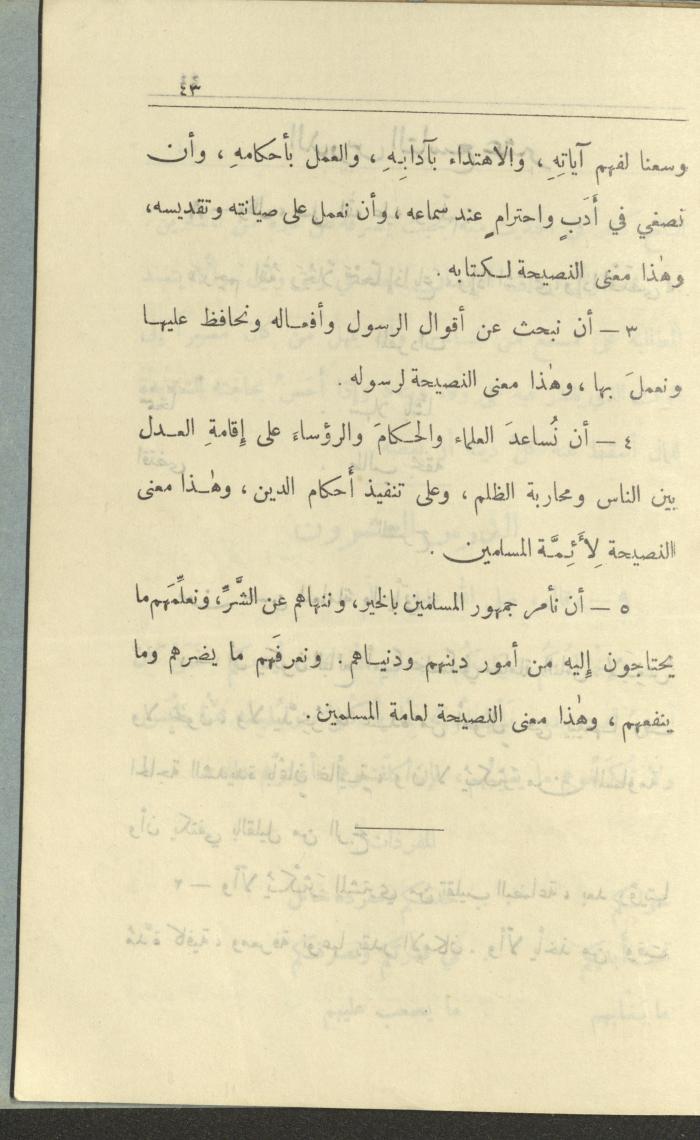 ٤٣
وسعنا لفهم آياتِهِ ، والاهتداء بآدابِهِ ، والعمل بأحكامهِ ، وأن
نصغي في أَدَبٍ واحترامٍ عند سماعه ، وأن نعمل على صيانته وتقديسه،
وهٰذا معنى النصيحة لكتابه .
٣ — أن نبحث عن أقوال الرسول وأفعاله ونحافظ عليها
ونعملَ بها ، وهٰذا معنى النصيحة لرسوله .
٤ — أن نُساعدَ العلماء والحكامَ والرؤساءَ على إِقامةِ العدل
بين الناس ومحاربة الظلم ، وعلى تنفيذ أَحكام الدين ، وهٰذا معنى
النصيحة لِأَئِمَّة المسلمين .
٥ — أن نأمر جمهور المسلمين بالخير، وننهاهم عن الشَّرِّ، ونعلِّمَهم ما
يحتاجون إِليه من أمور دينهم ودنياهم . ونعرفَهم ما يضرهم وما
ينفعهم ، وهٰذا معنى النصيحة لعامة المسلمين .